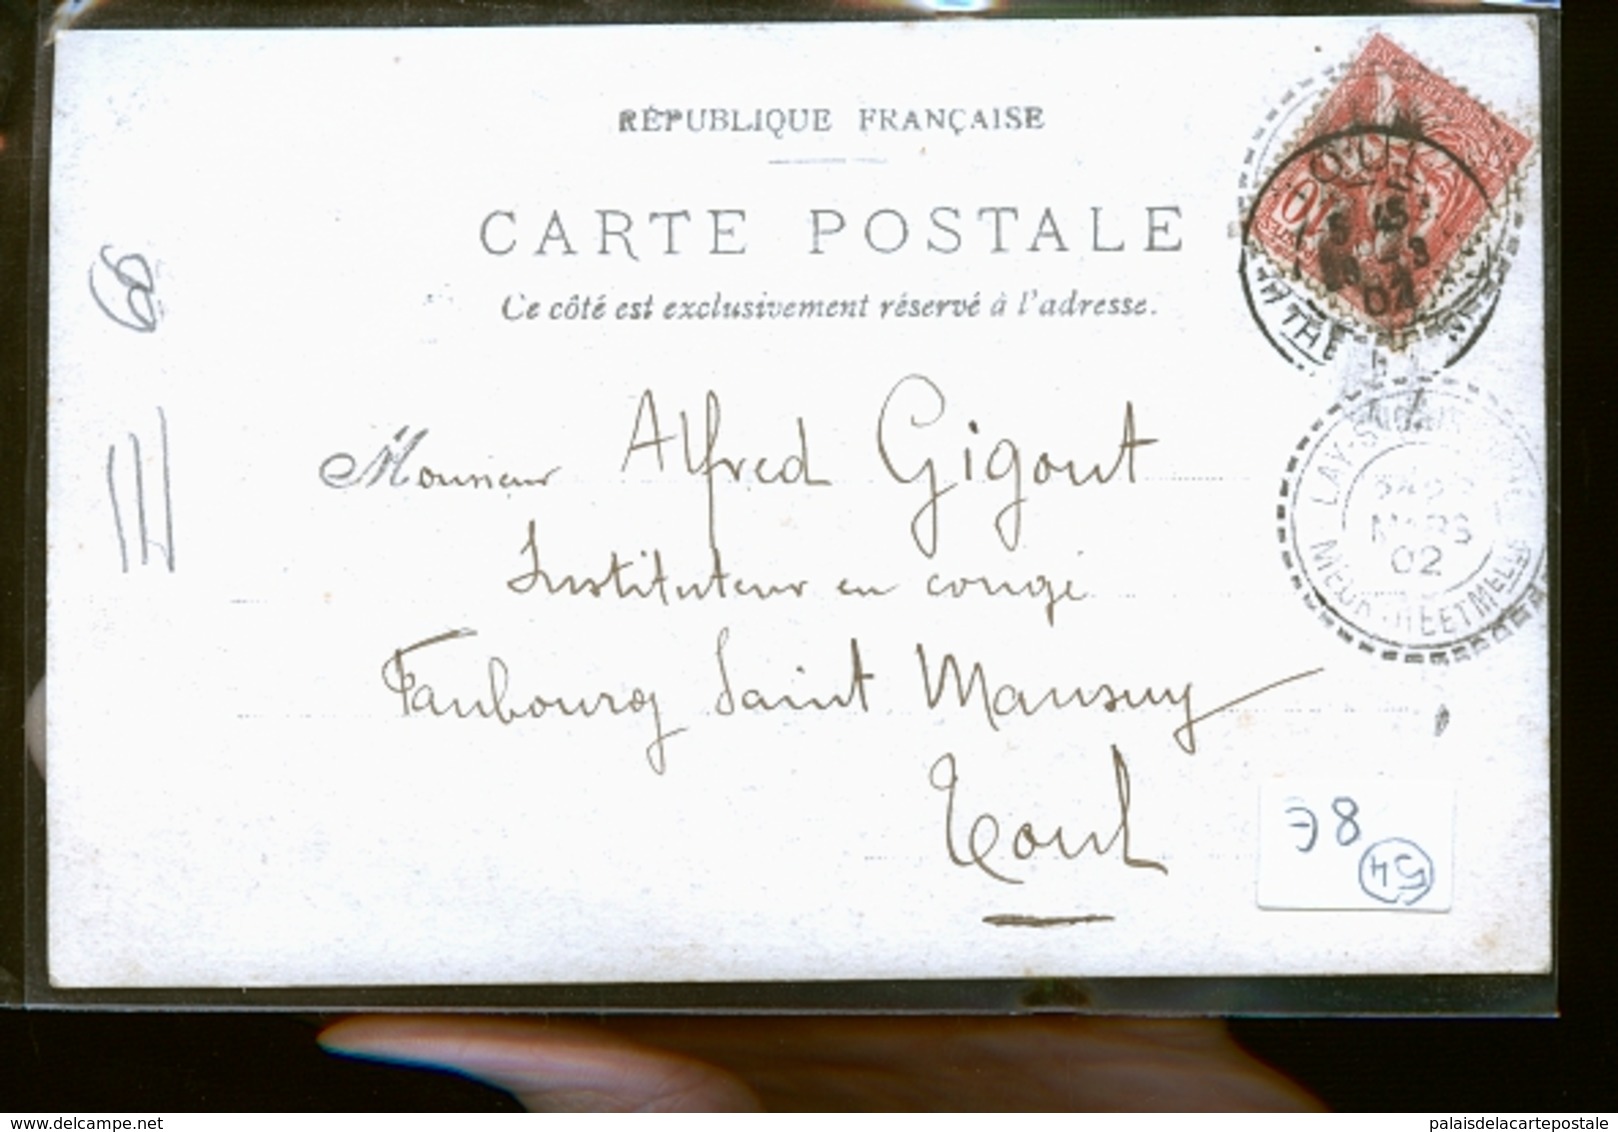 RÉPUBLIQUE FRANÇAISE
CARTE POSTALE
Ce côté est exclusivement réservé à l'adresse.
Monsieur Alfred Gigout
Instituteur en congé
Faubourg Saint Mansuy
Toul
10
02
LAY-S
MARS
02
MEURTHE ET MELLE
8€
54
palaisdelacartepostale
www.delcampe.net